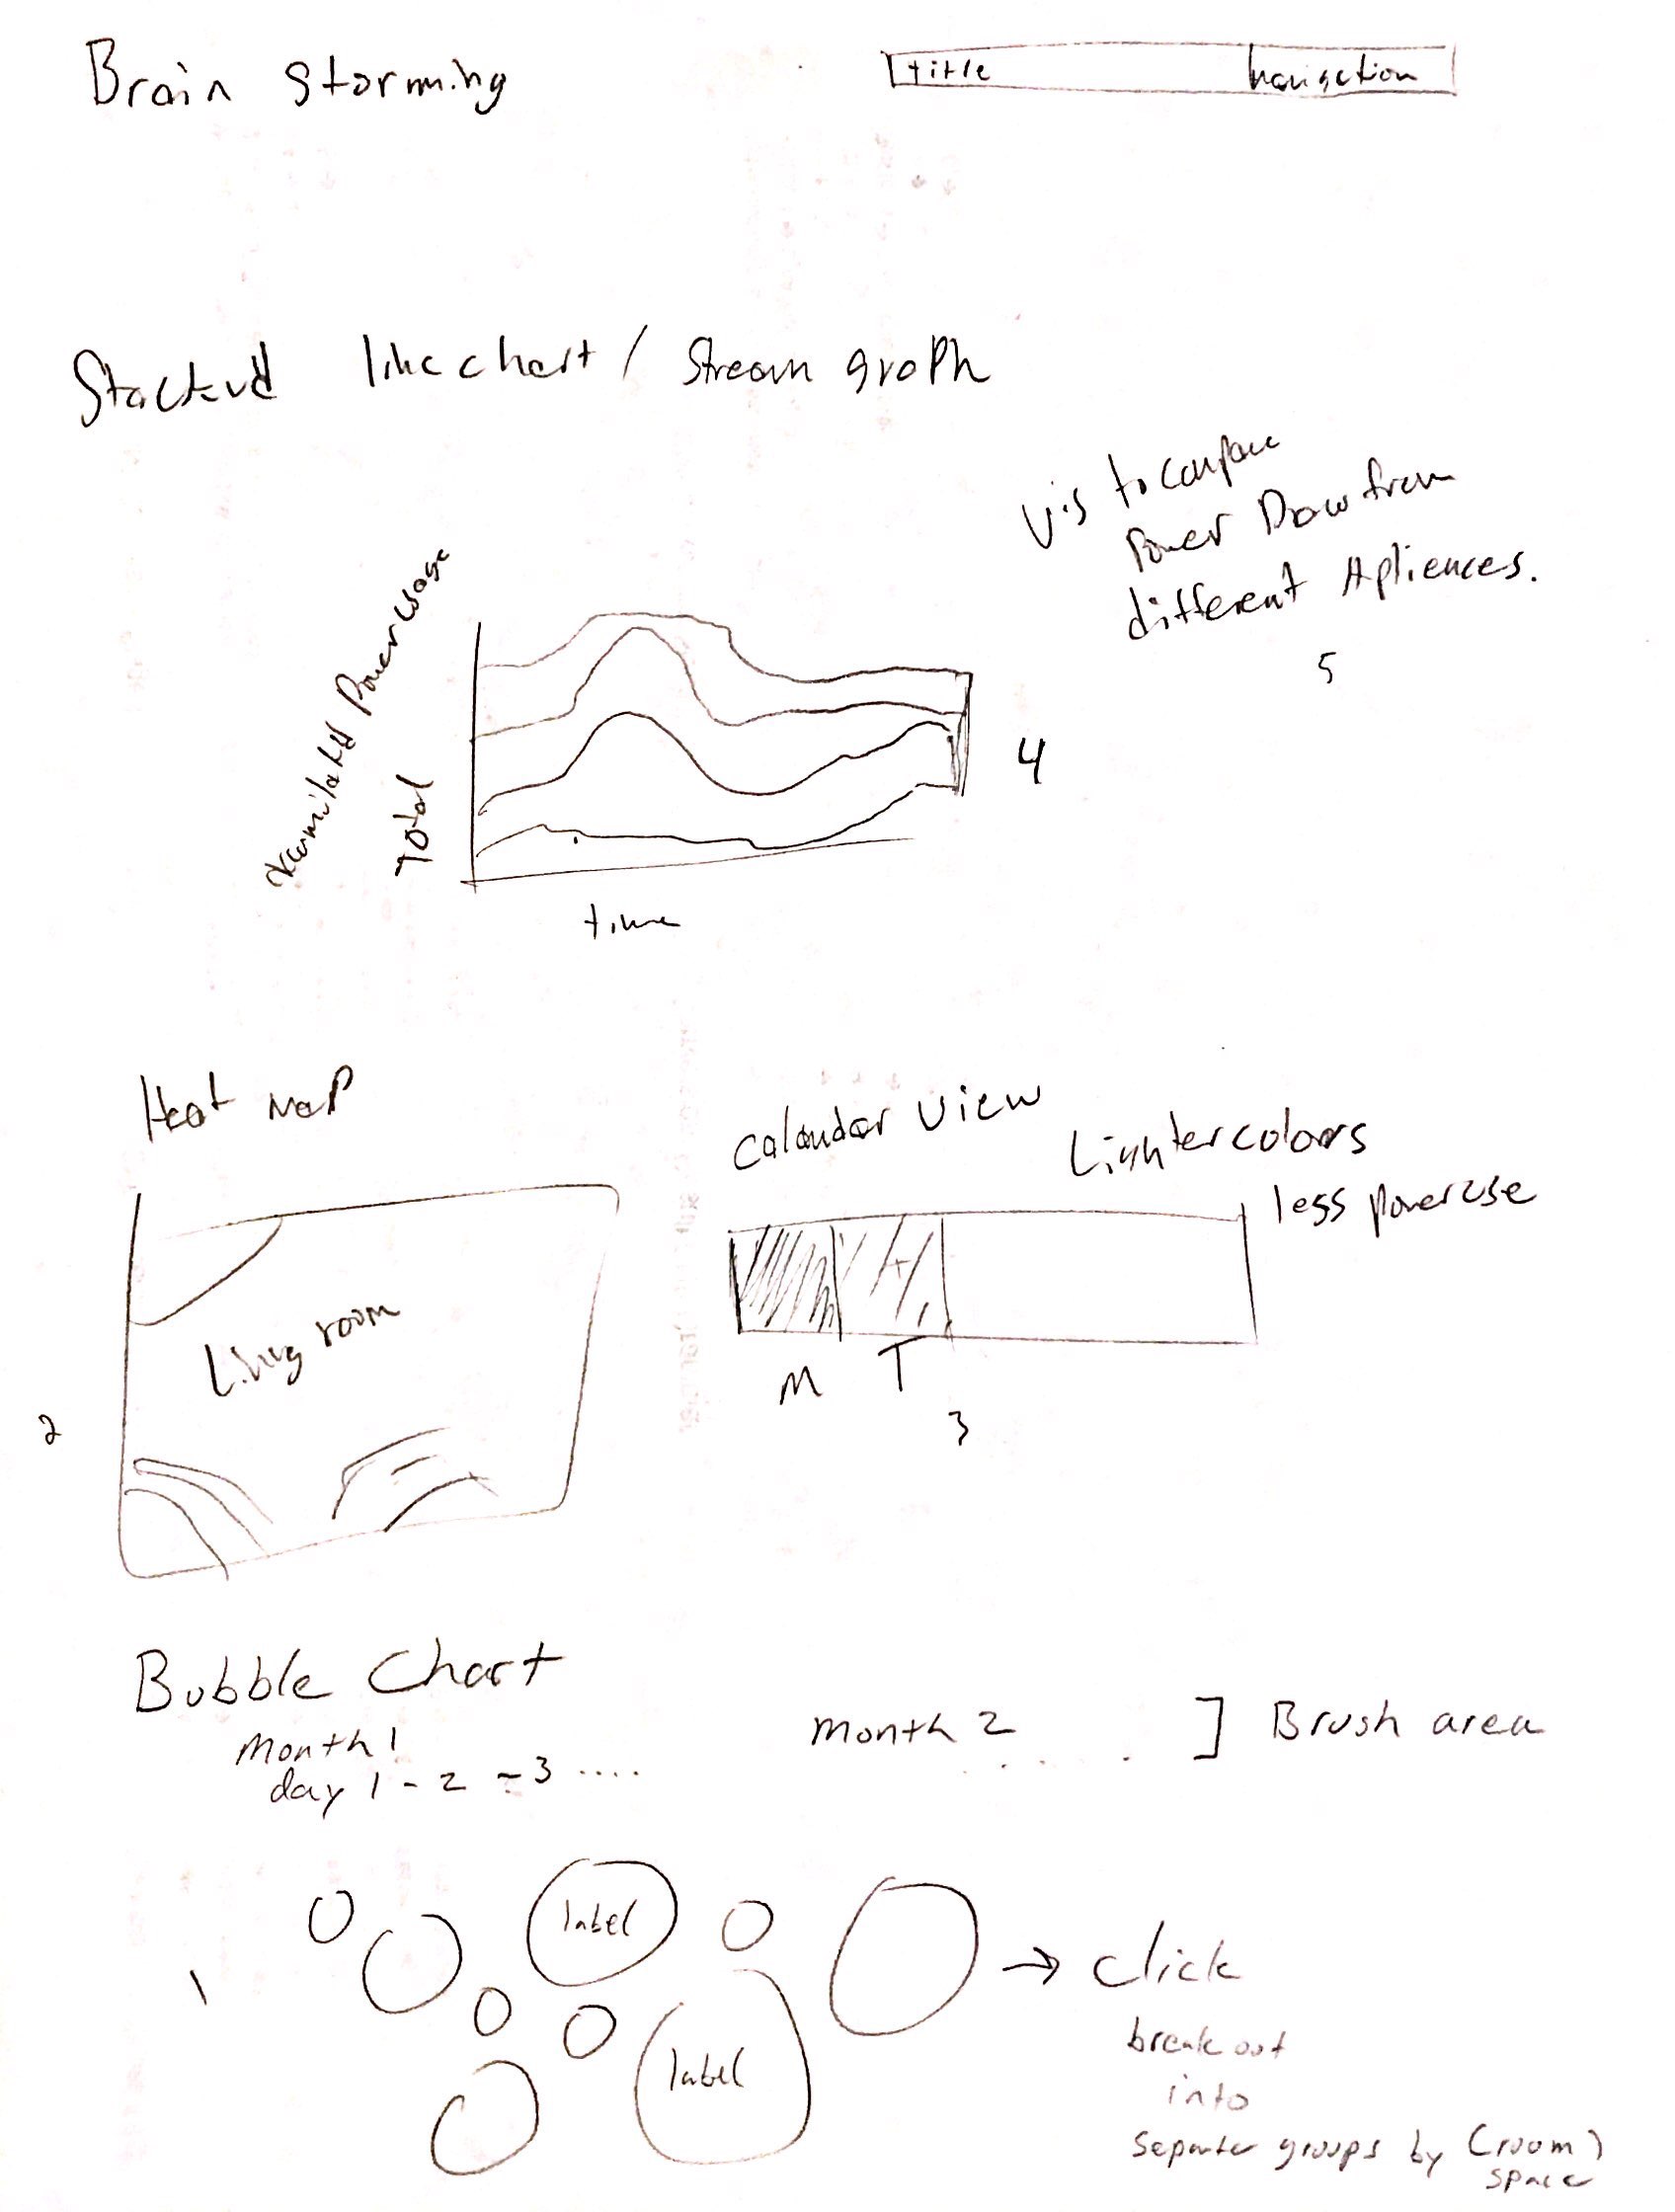 Brain storming
title
navigation
Stacked line chart / Stream graph
Vis to compare
Power Draw from
different Apliences.
5
Power usage
Total
4
time
Heat map
Calandar View
Lighter colors
less power use
Living room
M T
2
3
Bubble Chart
Month 1
Month 2
] Brush area
day 1 - 2 - 3 ....
.....
label
1
→ click
label
break out
into
separate groups by (room)
space